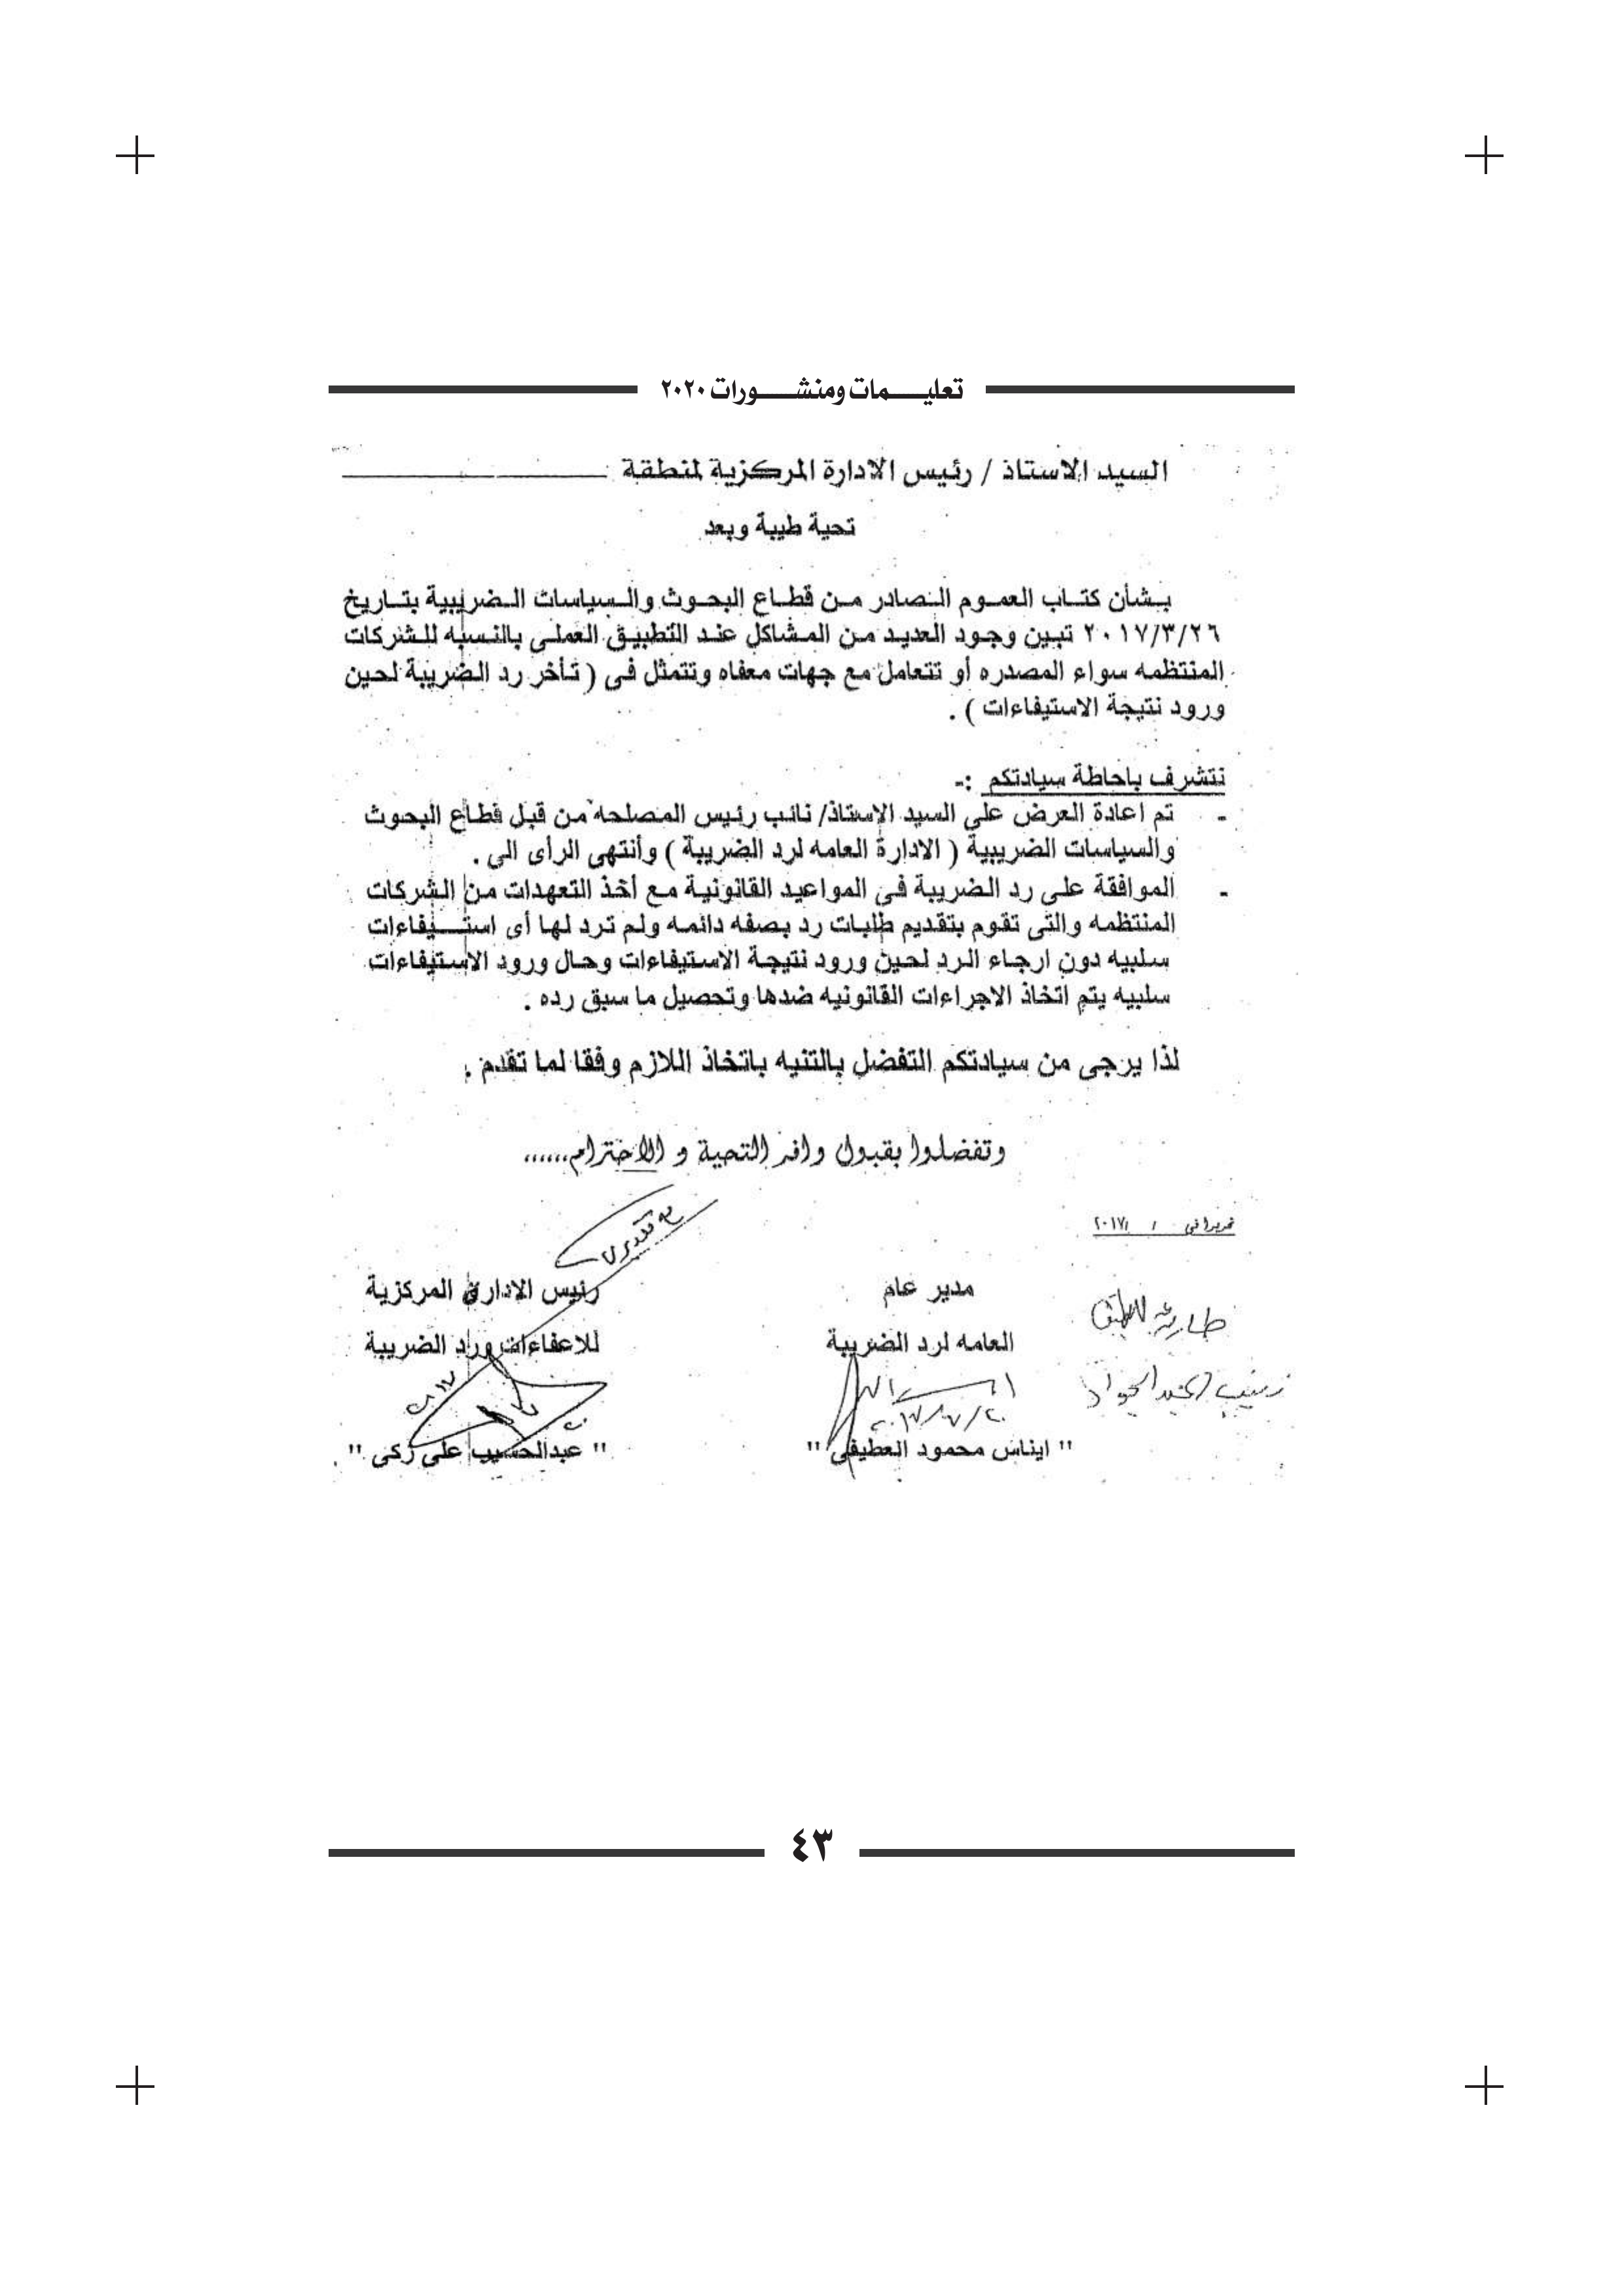 تعليمات ومنشورات ٢٠٢٠
السيد الاستاذ / رئيس الادارة المركزية لمنطقة
تحية طيبة وبعد
بشأن كتاب العموم الصادر من قطاع البحوث والسياسات الضريبية بتاريخ
٢٠١٧/٣/٢٦ تبين وجود العديد من المشاكل عند التطبيق العملى بالنسبه للشركات
المنتظمه سواء المصدره أو تتعامل مع جهات معفاه وتتمثل فى ( تأخر رد الضريبة لحين
ورود نتيجة الاستيفاءات ) .
نتشرف باحاطة سيادتكم :-
- تم اعادة العرض على السيد الاستاذ/ نائب رئيس المصلحه من قبل قطاع البحوث
والسياسات الضريبية ( الادارة العامه لرد الضريبة ) وأنتهى الرأى الى .
- الموافقة على رد الضريبة فى المواعيد القانونية مع أخذ التعهدات من الشركات
المنتظمه والتى تقوم بتقديم طلبات رد بصفه دائمه ولم ترد لها أى استيفاءات
سلبيه دون ارجاء الرد لحين ورود نتيجة الاستيفاءات وحال ورود الاستيفاءات
سلبيه يتم اتخاذ الاجراءات القانونيه ضدها وتحصيل ما سبق رده .
لذا يرجى من سيادتكم التفضل بالتنيه باتخاذ اللازم وفقا لما تقدم .
وتفضلوا بقبول وافر التحية و الاحترام......
تحريرا فى / / ٢٠١٧
مدير عام
العامه لرد الضريبة
" ايناس محمود العطيفى "
رئيس الادارة المركزية
للاعفاءات ورد الضريبة
" عبدالحسيب على زكى "
٤٣